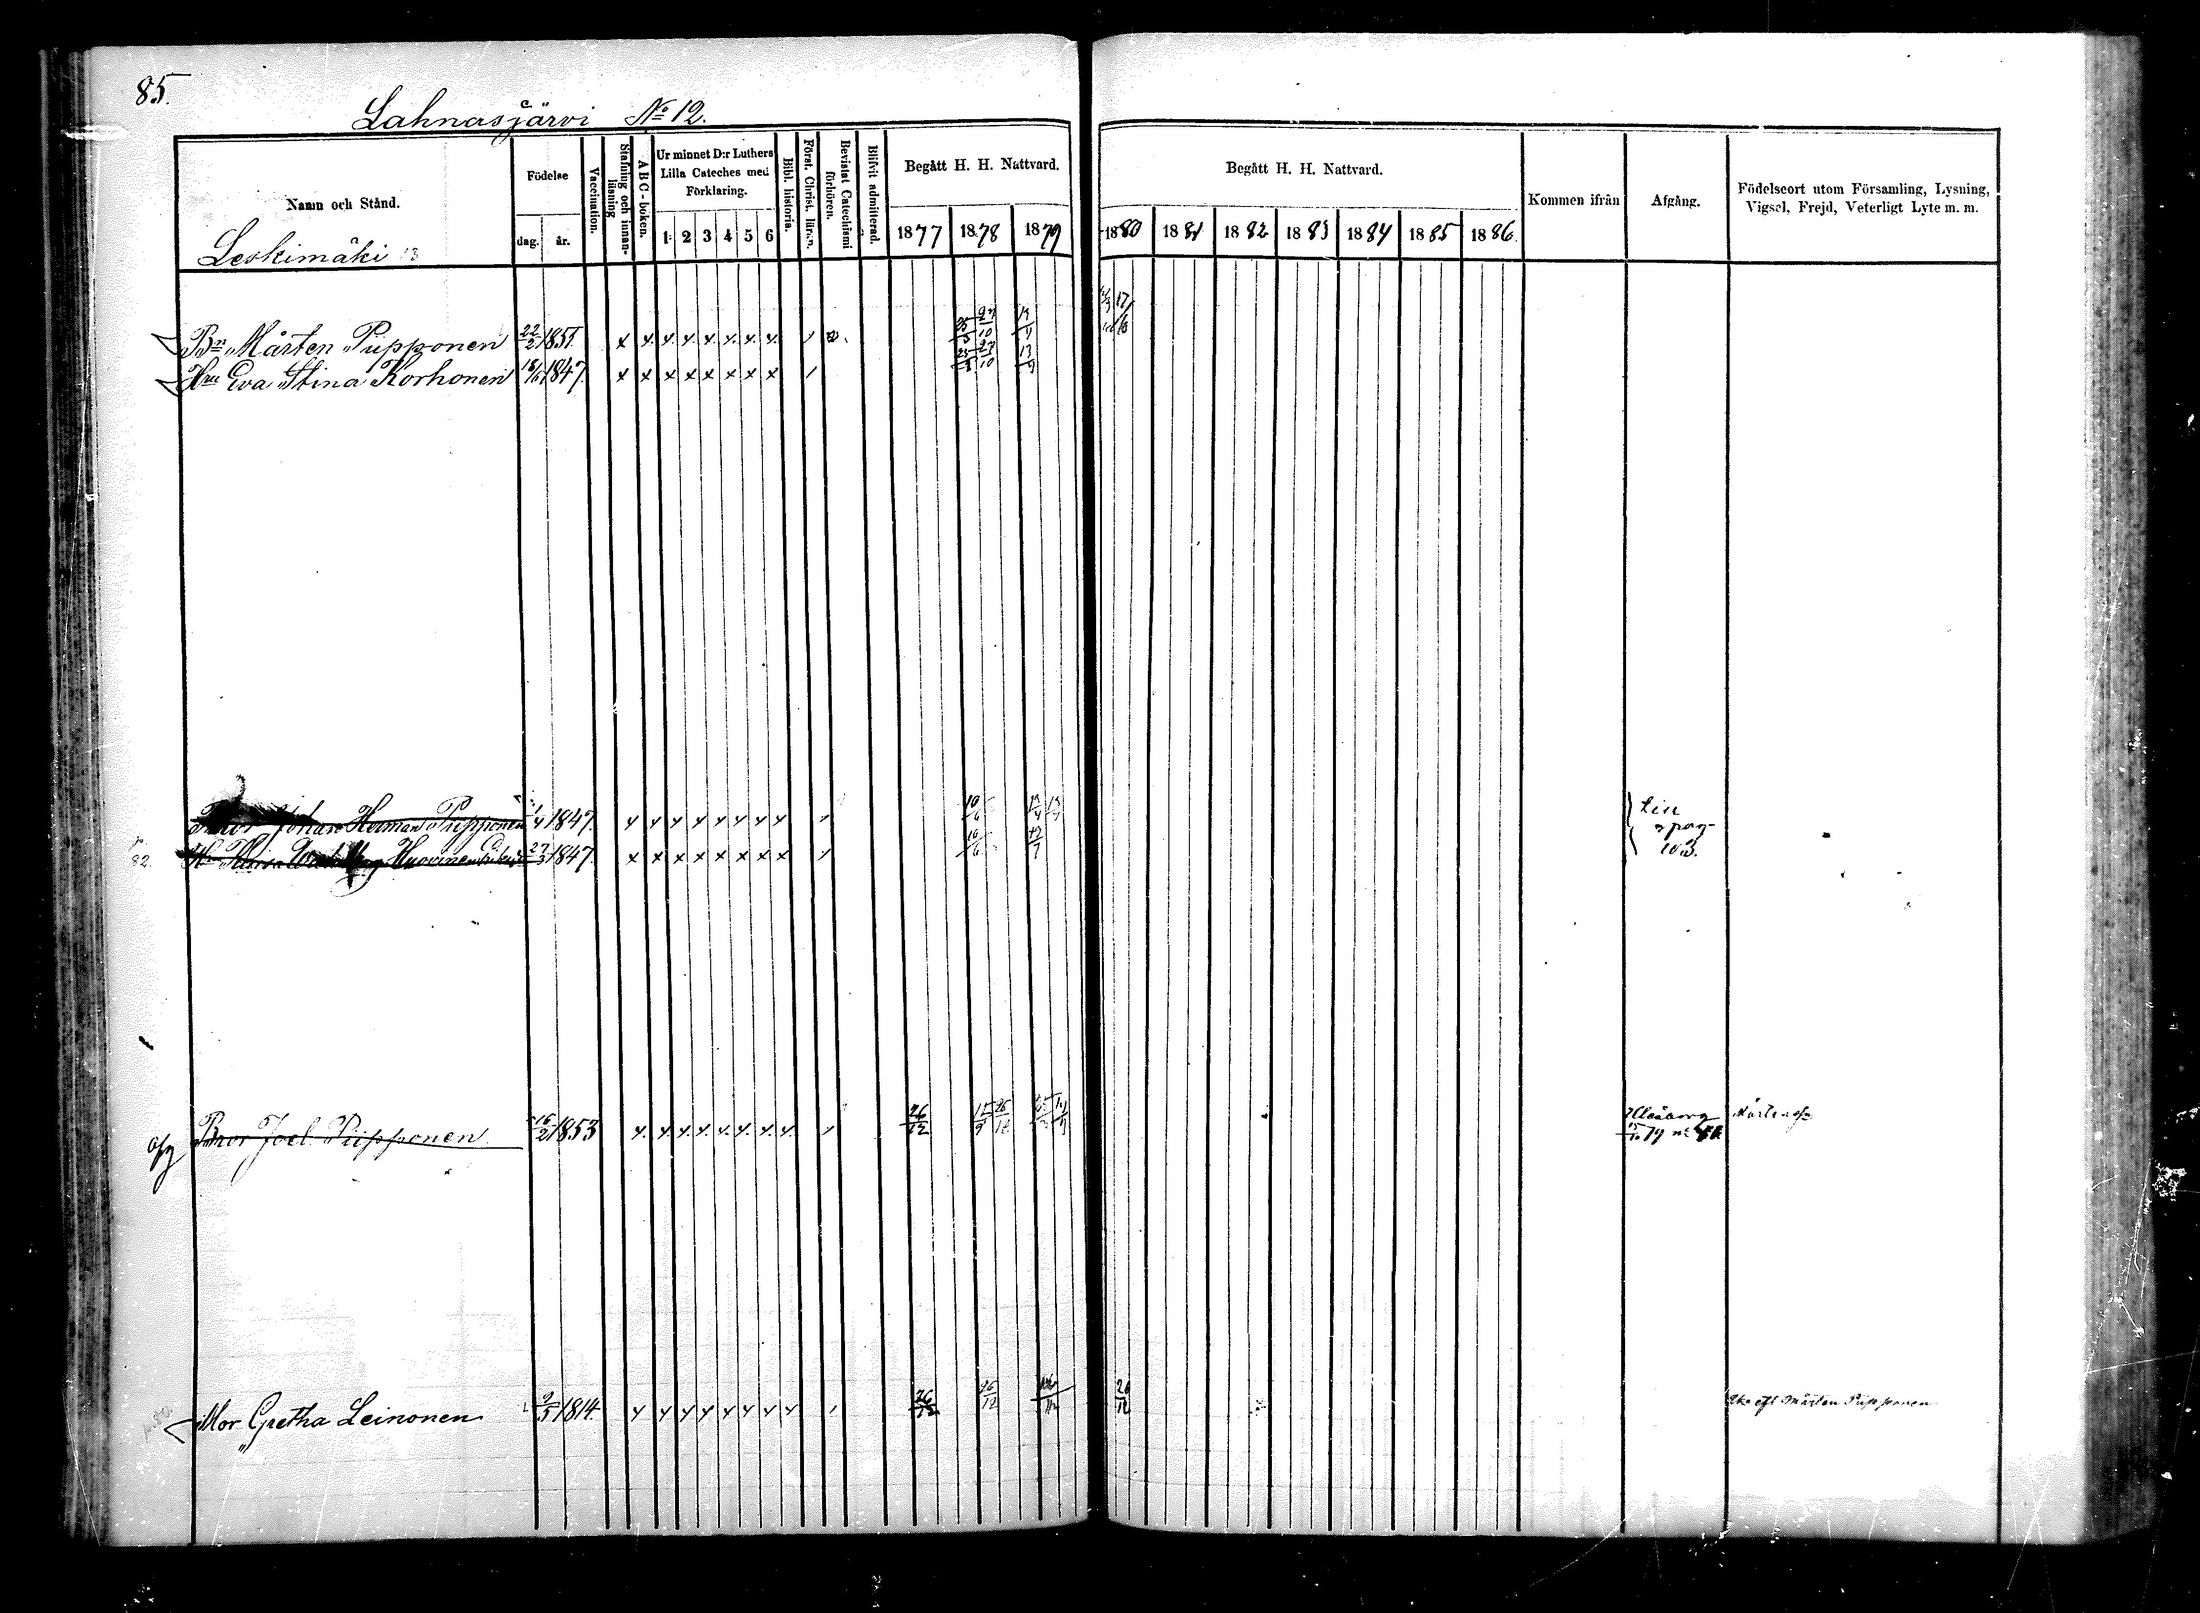 85.
Lahnasjärvi No 12.
Namn och Stånd.
Leskimäki
Födelse
dag. år.
Vaccination.
Stafning och innan-läsning
A B C-boken.
Ur minnet D:r Luthers
Lilla Cateches med
Förklaring.
1 2 3 4 5 6
Bibl. historia.
Först. Christ. läran.
Bevistat Catechismi förhören.
Blifvit admitterad.
Begått H. H. Nattvard.
1877 1878 1879
Begått H. H. Nattvard.
1880 1881 1882 1883 1884 1885 1886
Kommen ifrån
Afgång.
Födelseort utom Församling, Lysning,
Vigsel, Frejd, Veterligt Lyte m. m.
Bn Mårten Piipponen 22/2 1851. x x x x x x x x 1
Hu Eva Stina Korhonen 1847. x x x x x x x x 1
Johan Herman Piipponen 1/4 1847. x x x x x x x x 1
82. Huovinen 27/3 1847. x x x x x x x x 1
103.
Bror Joel Piipponen 16/2 1853 x x x x x x x x 1 26/12
Uleåborg
79
Mor Gretha Leinonen 9/5 1814. x x x x x x x x 1 26/12 26/12 26/12
Eko efl Mårten Piipponen